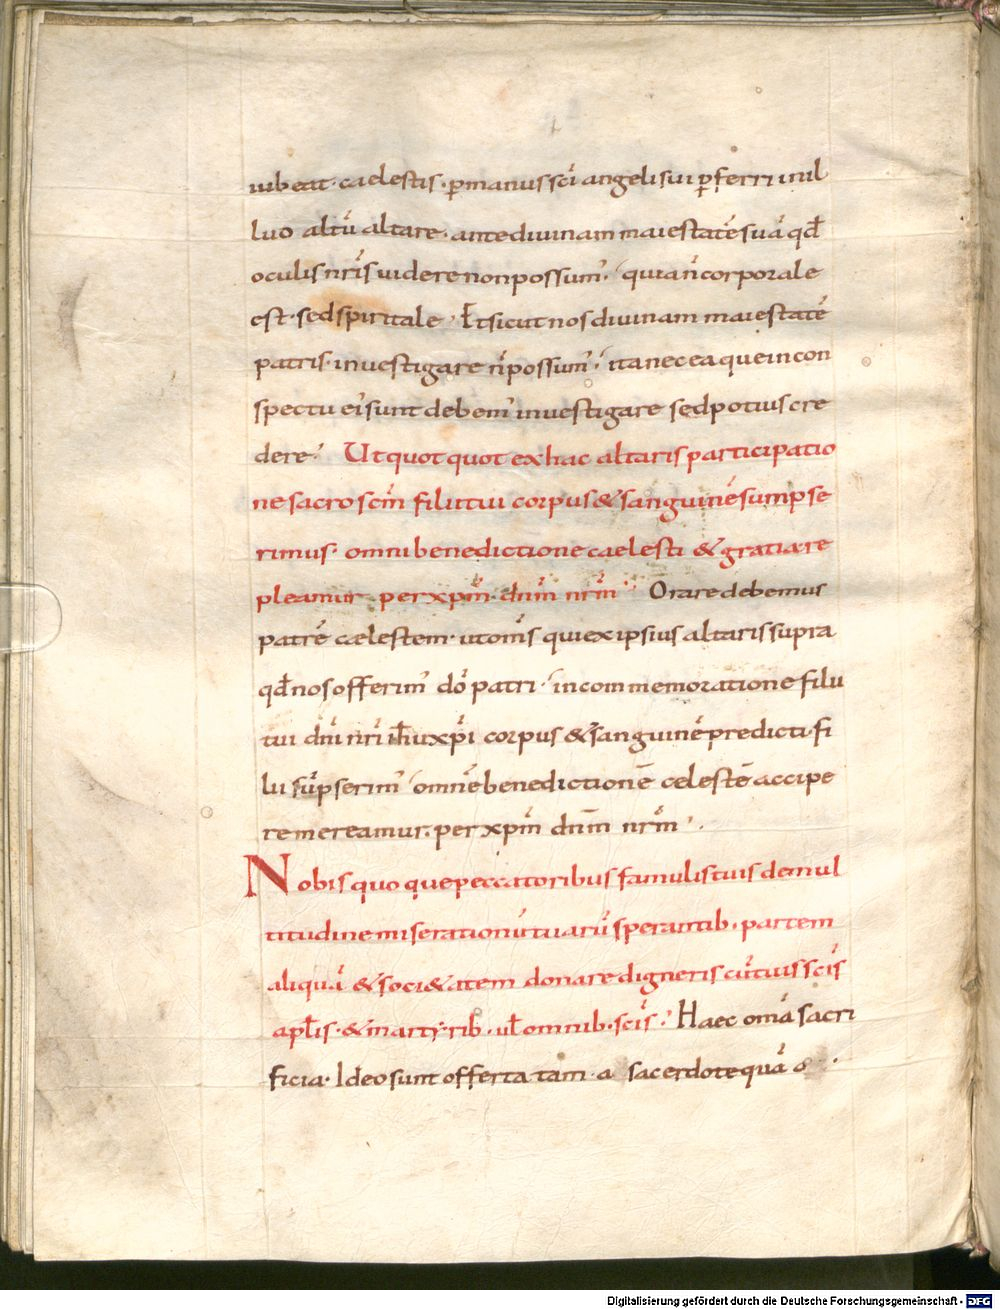 iubeat· caelestis· p̄manus sc̄i angeli sui p̄ferri inil
luo altū altare· ante diuinam maiestatē suā qđ
oculis nr̄is uidere non possum᾽· quia ñ corporale
est· sed spiritale· Et sicut nos diuinam maiestatē
patris· inuestigare ñ possum᾽· ita nec ea que in con
spectu ei᾽ sunt debem᾽ inuestigare sed potius cre
dere· Ut quot quot ex hac altaris participatio
ne sacro sc̄m filii tui corpus & sanguinē sumpse
rimus· omni benedictione caelesti & gratia re
pleamur· per xp̄m· dn̄m nr̄m· Orare debemus
patrē cælestem· ut om̄s qui ex ipsius altaris supra
qđ nos offerim᾽ dō patri· in commemoratione filii
tui dn̄i nr̄i ih̄u xp̄i corpus & sanguinē predicti fi
lii sūpserim᾽ omnē benedictionē celestē accipe
re mereamur· per xp̄m dn̄m nr̄m·
Nobis quo que peccatoribus famulis tuis de mul
titudine miserationū tuarū sperantib· partem
aliquā & soci&atem donare digneris cū tuis sc̄is
apl̄is· & martyrib· ul̄ omnib· sc̄is· Haec om̄a sacri
ficia· Ideo sunt offerta tam a sacerdote quā a
Digitalisierung gefördert durch die Deutsche Forschungsgemeinschaft - DFG